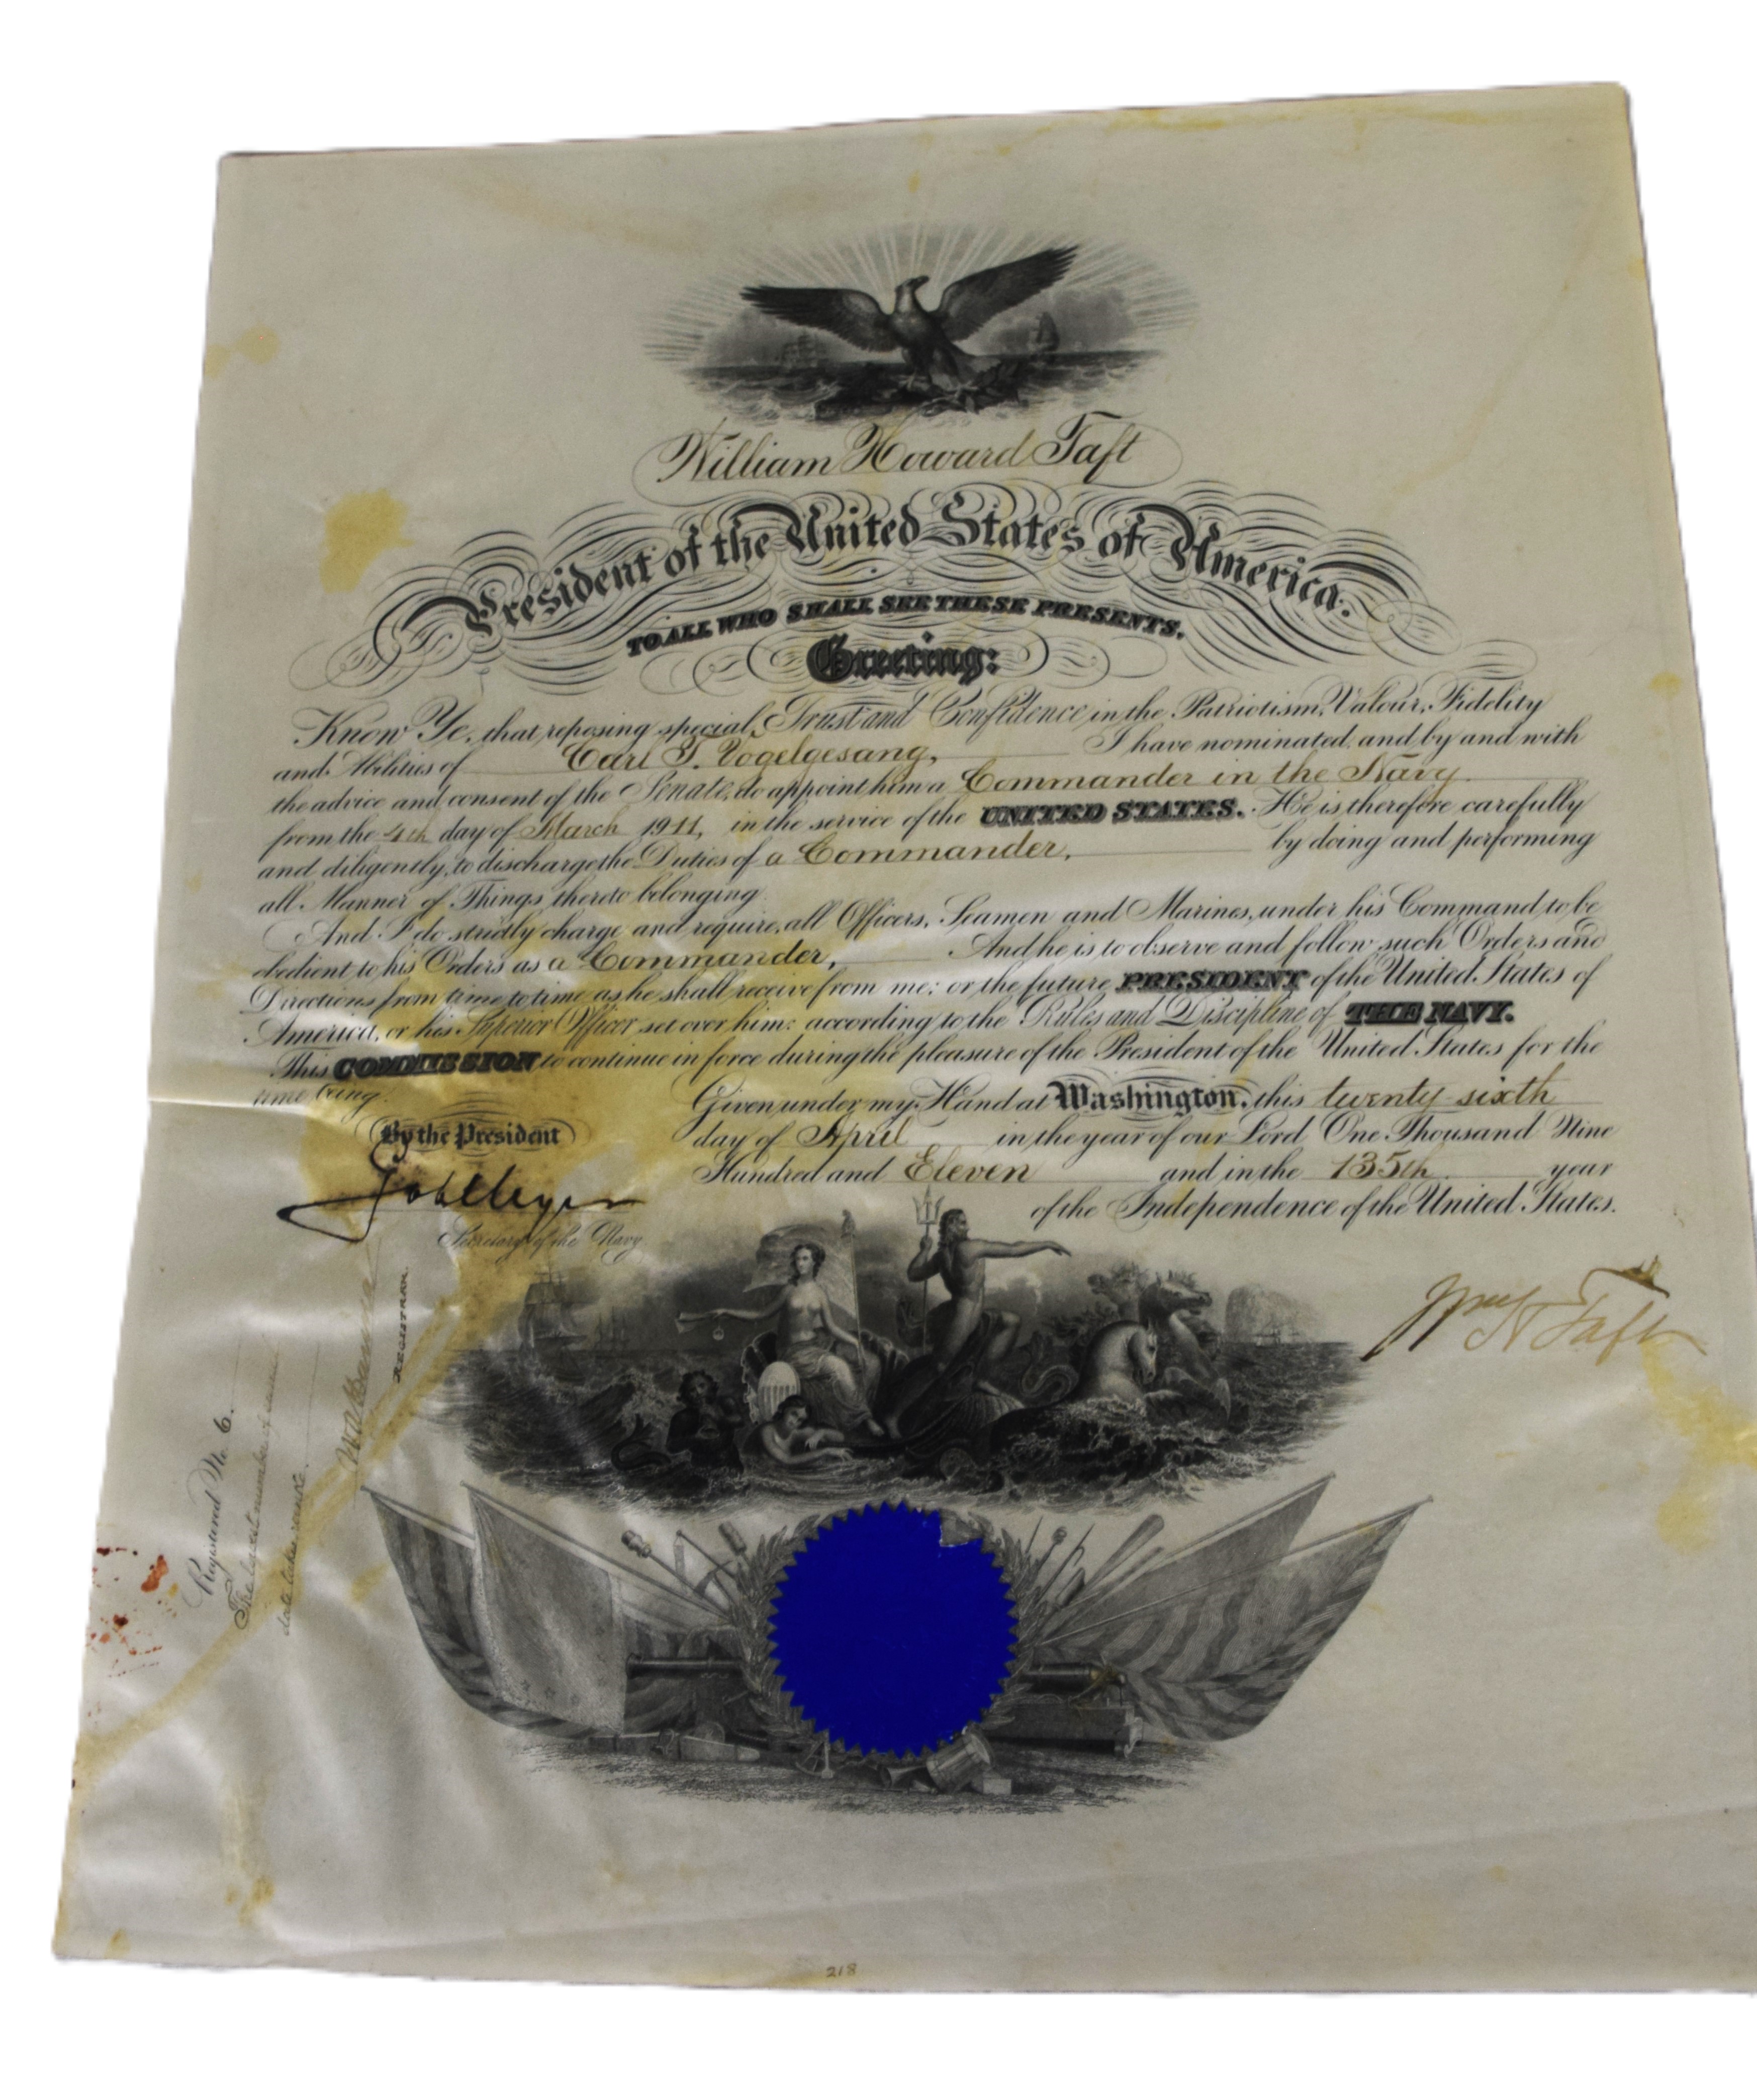 William Howard Taft
President of the United States of America.
TO ALL WHO SHALL SEE THESE PRESENTS,
Greeting:
Know Ye, that reposing special Trust and Confidence in the Patriotism, Valour, Fidelity
and Abilities of Carl T. Vogelgesang, I have nominated and by and with
the advice and consent of the Senate, do appoint him a Commander in the Navy
from the 4th day of March 1911, in the service of the UNITED STATES. He is therefore carefully
and diligently to discharge the Duties of a Commander, by doing and performing
all Manner of Things thereto belonging.
And I do strictly charge and require all Officers, Seamen and Marines, under his Command to be
obedient to his Orders as a Commander, And he is to observe and follow such Orders and
Directions from time to time as he shall receive from me; or the future PRESIDENT of the United States of
America, or his Superior Officer set over him; according to the Rules and Discipline of THE NAVY.
This COMMISSION to continue in force during the pleasure of the President of the United States for the
time being.
Given under my Hand at Washington, this twenty sixth
day of April in the year of our Lord One Thousand Nine
Hundred and Eleven and in the 135th year
of the Independence of the United States.
By the President
Secretary of the Navy
Wm H Taft
Registered No 6.
date takes rank.
REGISTRAR.
218